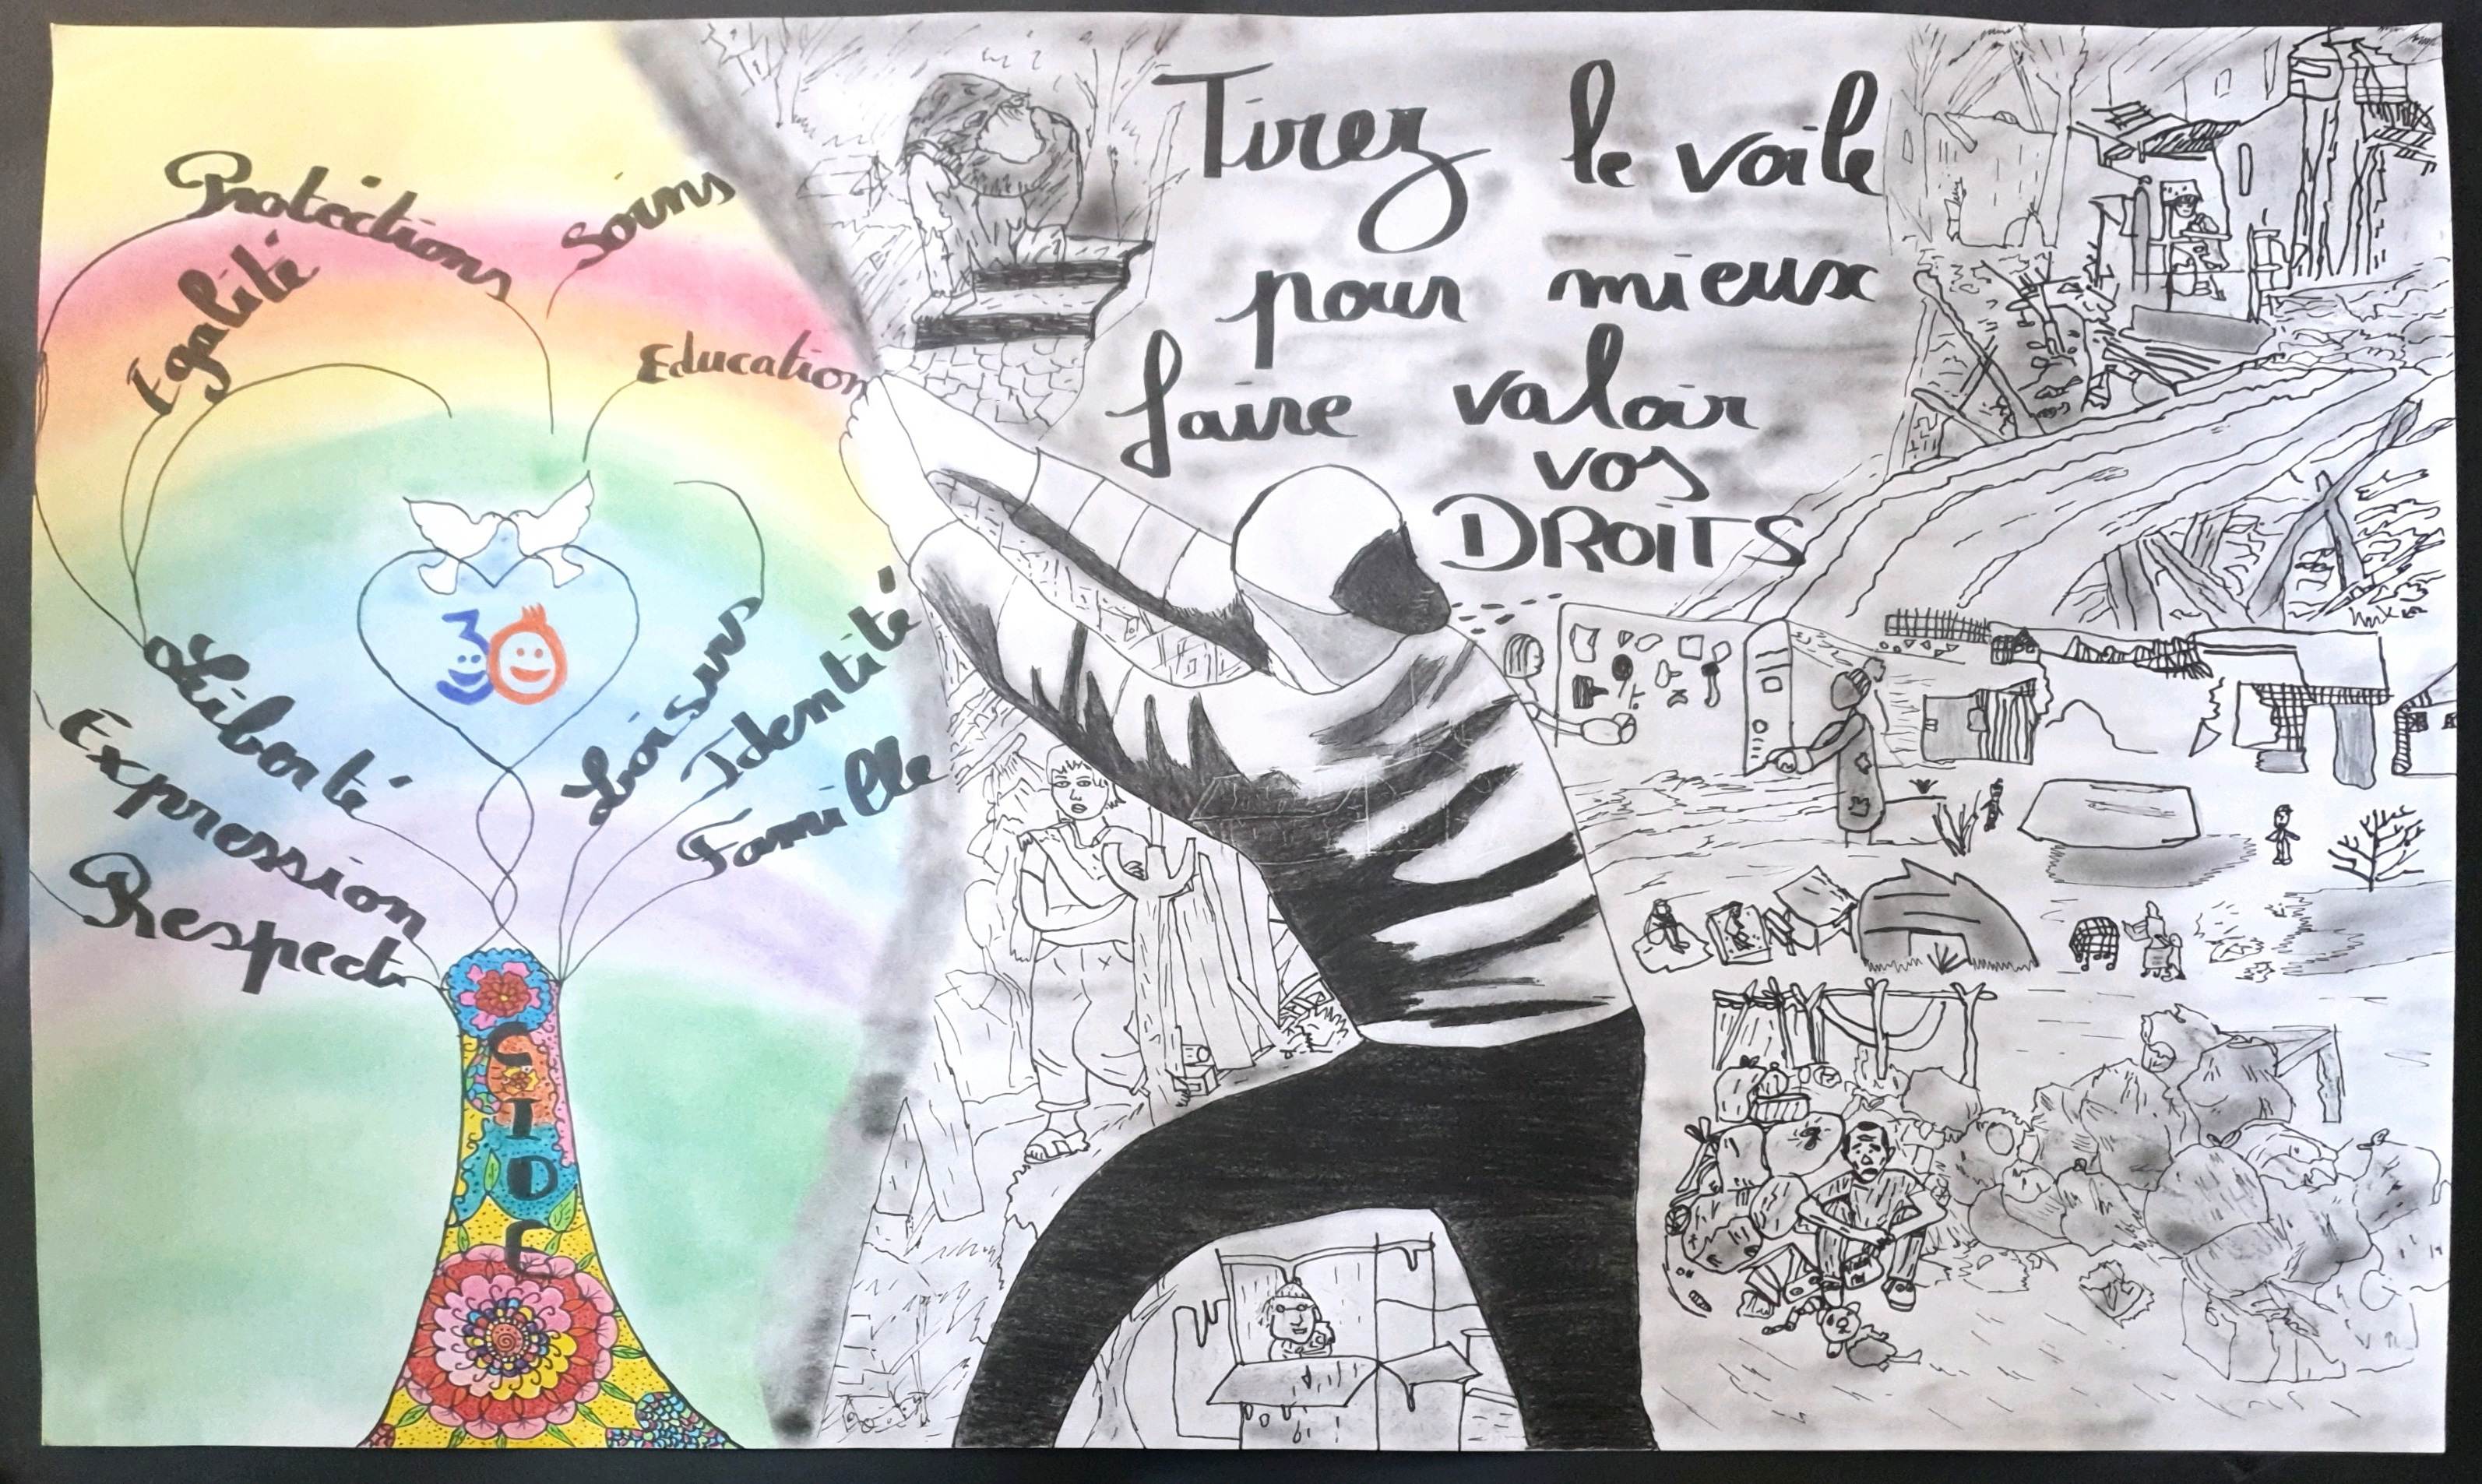 Protections
Soins
Egalité
Education
30
Liberté
Loisirs
Identité
Expression
Famille
Respect
CIDE
Tirez le voile
pour mieux
faire valoir
vos
DROITS